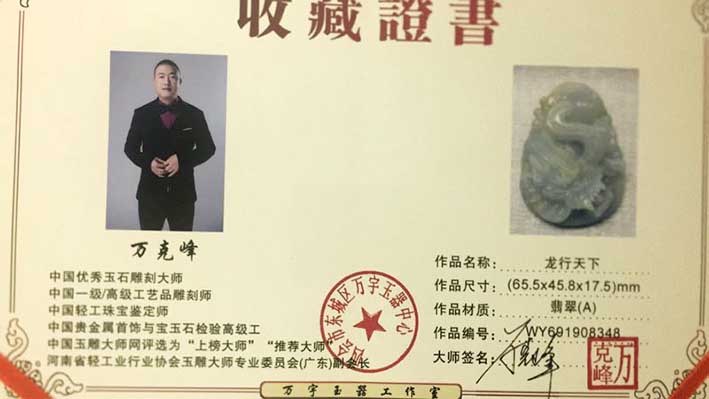 收藏證書
万克峰
中国优秀玉石雕刻大师
中国一级/高级工艺品雕刻师
中国轻工珠宝鉴定师
中国贵金属首饰与宝玉石检验高级工
中国玉雕大师网评选为“上榜大师”“推荐大师”
河南省轻工业行业协会玉雕大师专业委员会(广东)副会长
会市东城区万宇玉器中心
作品名称：龙行天下
作品尺寸：(65.5x45.8x17.5)mm
作品材质：翡翠(A)
作品编号：WY691908348
大师签名：
万克峰
万宇玉器工作室